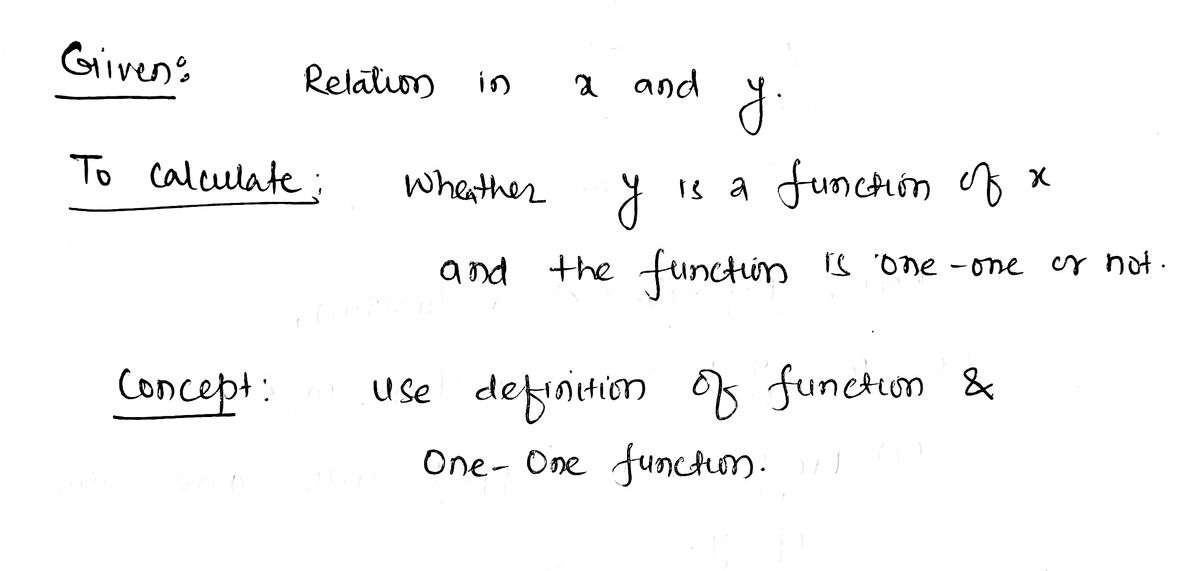 Given: Relation in x and y.
To calculate: Wheather y is a function of x
and the function is one-one or not.
Concept: use definition of function &
One-One function.